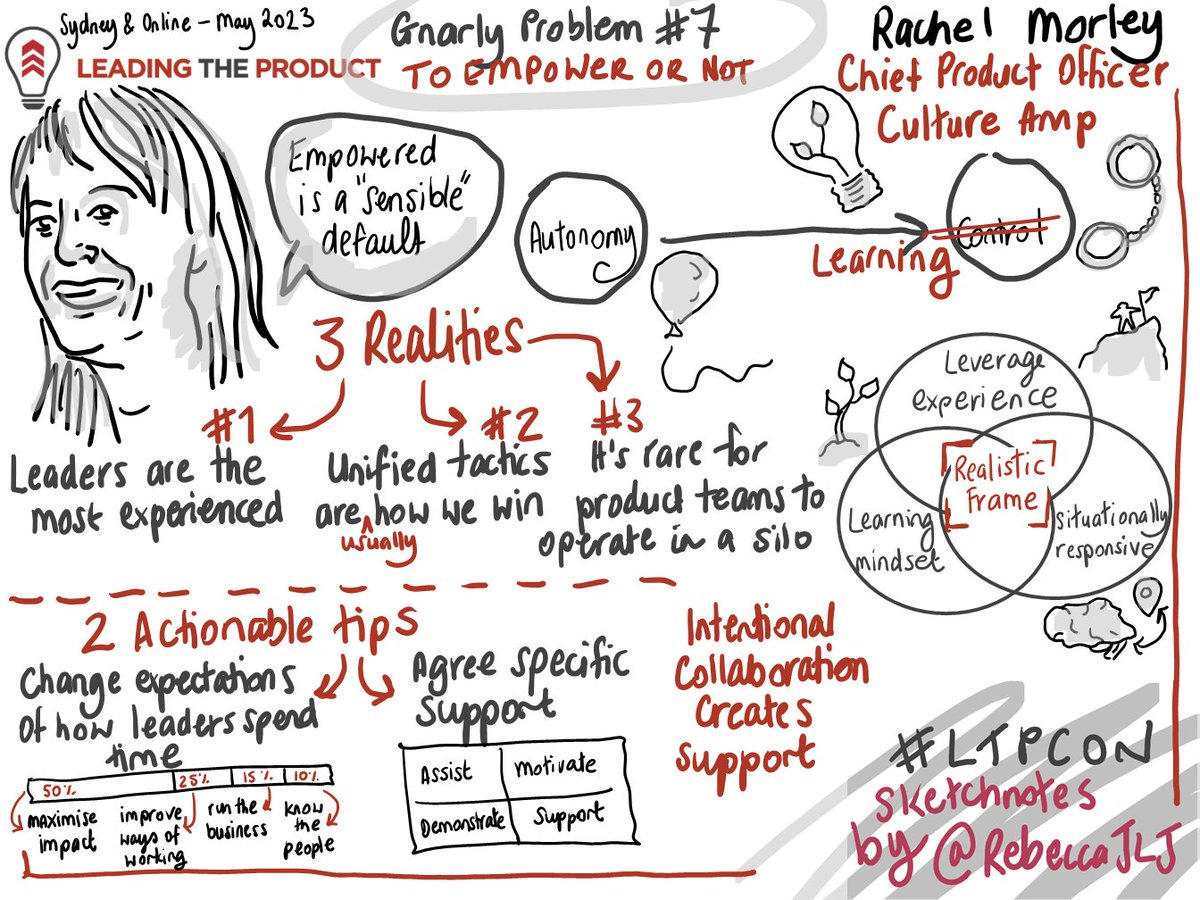 Sydney & Online – May 2023
LEADING THE PRODUCT
Gnarly Problem #7
TO EMPOWER OR NOT
Rachel Morley
Chief Product Officer
Culture Amp
Empowered
is a "sensible"
default
Autonomy
Learning
Control
3 Realities
#1
Leaders are the
most experienced
#2
Unified tactics
are how we win
usually
#3
It's rare for
product teams to
operate in a silo
Leverage
experience
Realistic
Frame
Learning
mindset
Situationally
responsive
2 Actionable tips
Change expectations
of how leaders spend
time
50% 25% 15% 10%
maximise
impact
improve
ways of
working
run the
business
know
the
people
Agree specific
support
Assist
Motivate
Demonstrate
Support
Intentional
Collaboration
Creates
Support
#LTPCON
Sketchnotes
by @RebeccaJLJ